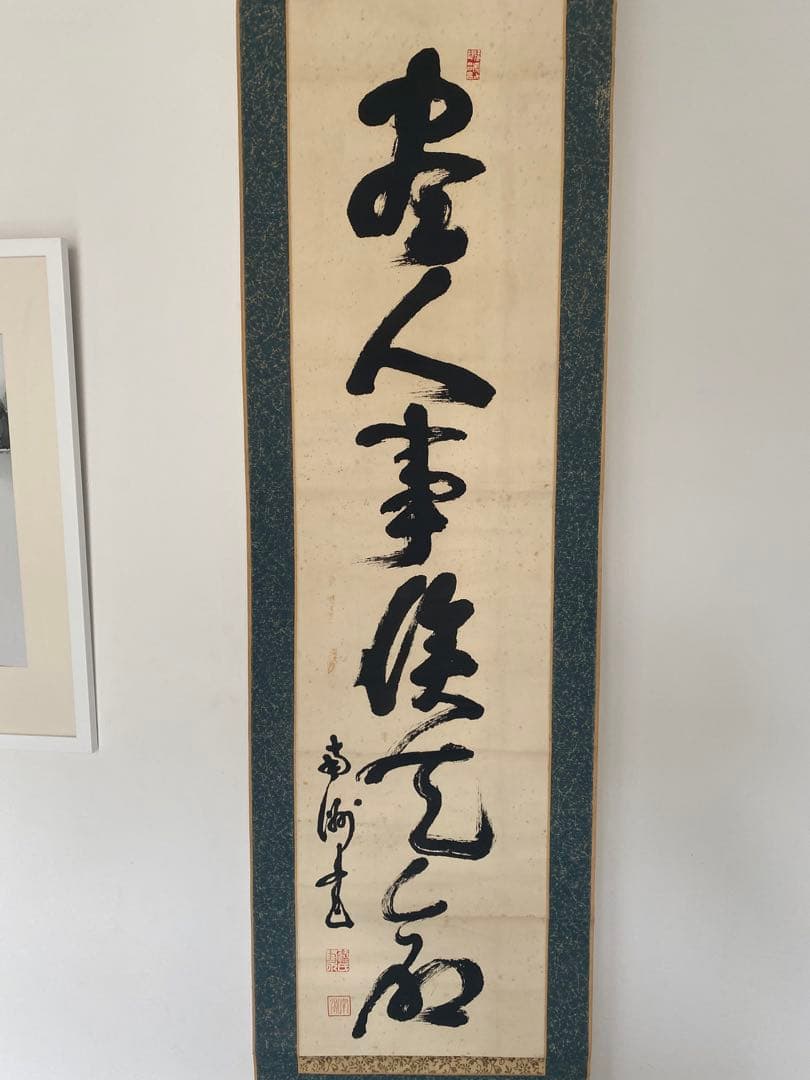 盡人事俟天命
南洲書